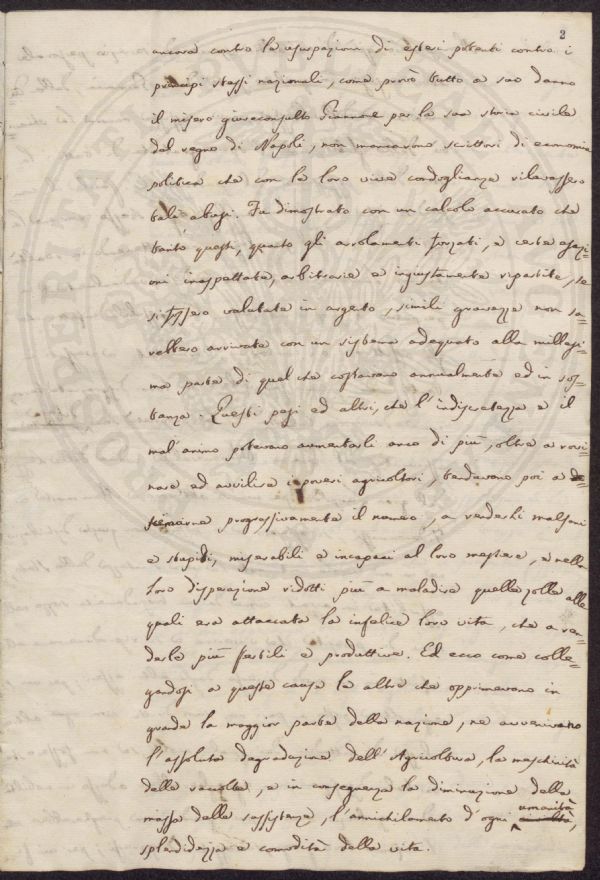 2
ancora contro la usurpazioni di esteri potenti contro i
principi stessi nazionali, come provò tutto a suo danno
il misero giureconsulto Giannone per la sua storia civile
del regno di Napoli, non mancarono scrittori di economia
politica che con le loro vive condoglianze rilevassero
tali abusi. Fu dimostrato con un calcolo accurato che
tanto questi, quanto gli arrolamenti forzati, e certe esazi-
oni inaspettate, arbitrarie e ingiustamente ripartite, se
si fossero valutate in argento, simili gravezze non sa-
rebbero arrivate con un sistema adeguato alla millesi-
ma parte di quel che costavano annualmente ed in sos-
tanza. Questi pesi ed altri, che l'indiscretezza e il
mal'animo potevano aumentarli anco di più, oltre a rovi-
nare ed avvilire i poveri agricoltori, tendevano poi a
progressivamente il numero, a renderli malsani
e stupidi, miserabili e incapaci al loro mestere, e nella
loro disperazione ridotti più a maledire quelle zolle alle
quali era attaccata la infelice loro vita, che a ren-
derle più fertili e produttive. Ed ecco come colle-
gandosi a queste cause le altre che opprimevano in
grande la maggior parte della nazione, ne avvenivano
l'assoluta degradazione dell'Agricoltura, la meschinità
delle raccolte, e in conseguenza la diminuzione della
massa delle sussistenze, l'annichilamento d'ogni umanità,
splendidezza e comodità della vita.